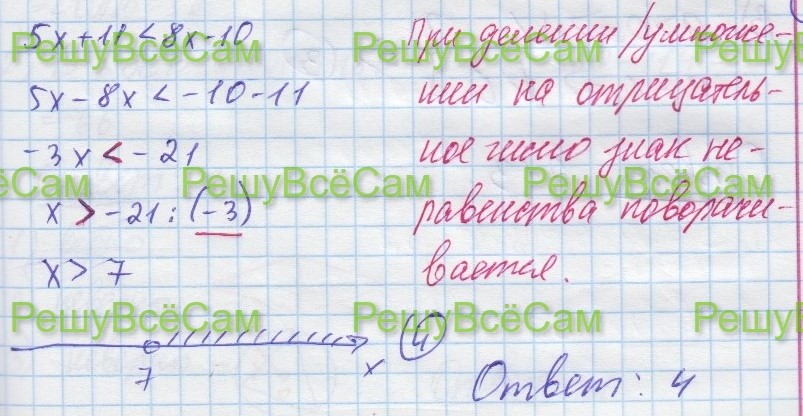 5x+11<8x-10
5x-8x<-10-11
-3x<-21
x>-21:(-3)
x>7
7
x
При делении/умноже-
нии на отрицатель-
ное число знак не-
равенства поворачи-
вается.
4
Ответ: 4
РешуВсёСам
РешуВсёСам
РешуВсёСам
РешуВсёСам
РешуВсёСам
РешуВсёСам
РешуВсёСам
РешуВсёСам
РешуВсёСам
РешуВсёСам
РешуВсёСам